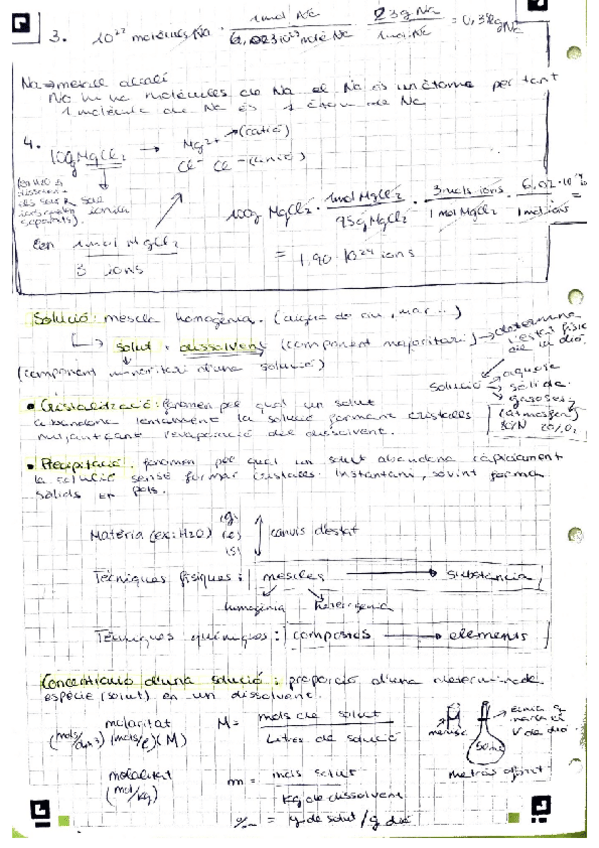 3. 10²² molècules Na · 1 mol Na / 6,023·10²³ molè Na · 23 g Na / 1 mol Na = 0,38 g Na
Na → metall alcalí
No hi ha molècules de Na el Na és un àtom per tant
1 molècula de Na és 1 àtom de Na
4. 100g MgCl₂ → Mg²⁺ → (catió)
Cl⁻ Cl⁻ (anió)
sal iònica
En 1 mol MgCl₂
3 ions
100g MgCl₂ · 1 mol MgCl₂ / 95g MgCl₂ · 3 mols ions / 1 mol MgCl₂ · 6,02 · 10²³ / 1 mol ions =
= 1,90 · 10²⁴ ions
Solució: mescla homogènia. (aigua de riu, mar...)
solut + dissolvent (component majoritari) → determina l'estat físic de la dió.
(component minoritari d'una solució)
Solució → aquosa
→ sòlida
→ gasoses
(atmosfera)
80% N 20% O₂
• Cristal·lització: fenomen pel qual un solut
abandona lentament la solució formant cristalls
mitjançant l'evaporació del dissolvent.
• Precipitació: fenomen pel qual un solut abandona ràpidament
la solució sense formar cristalls. Instantani, sovint forma
sòlids en pols.
Matèria (ex: H2O) (g) (l) (s) canvis d'estat
Tècniques físiques: mescles → substància
homogènia heterogènia
Tècniques químiques: compostos → elements
Concentració d'una solució: proporció d'una determinada
espècie (solut) en un dissolvent.
molaritat (mols/dm³) (mols/l) (M) M = mols de solut / Litres de solució
molalitat (mol/kg) m = mols solut / kg de dissolvent
% = g de solut / g dió
menisc
50ml
matràs aforat